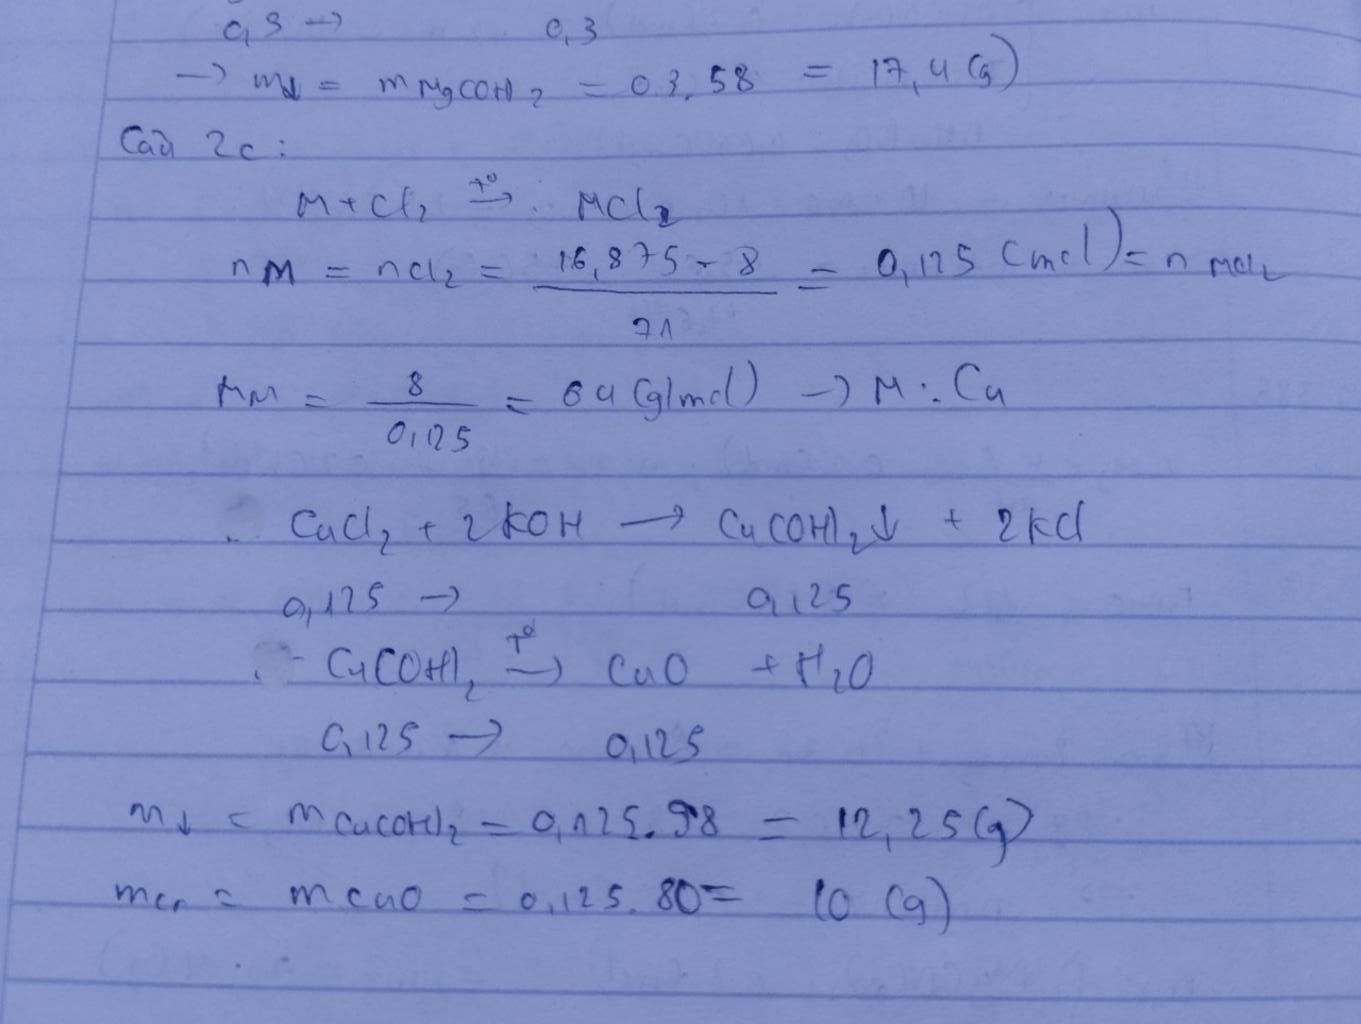 0,3 → 0,3
→ m↓ = mMg(OH)2 = 0.3.58 = 17,4 (g)
Câu 2c:
M + Cl2 t°→ MCl2
nM = nCl2 = (16,875 - 8) / 71 = 0,125 (mol) = n MCl2
MM = 8 / 0,125 = 64 (g/mol) → M : Cu
CuCl2 + 2KOH → Cu(OH)2↓ + 2KCl
0,125 → 0,125
- Cu(OH)2 t°→ CuO + H2O
0,125 → 0,125
m↓ = mCu(OH)2 = 0,125.98 = 12,25 (g)
mcr = mCuO = 0,125.80 = 10 (g)